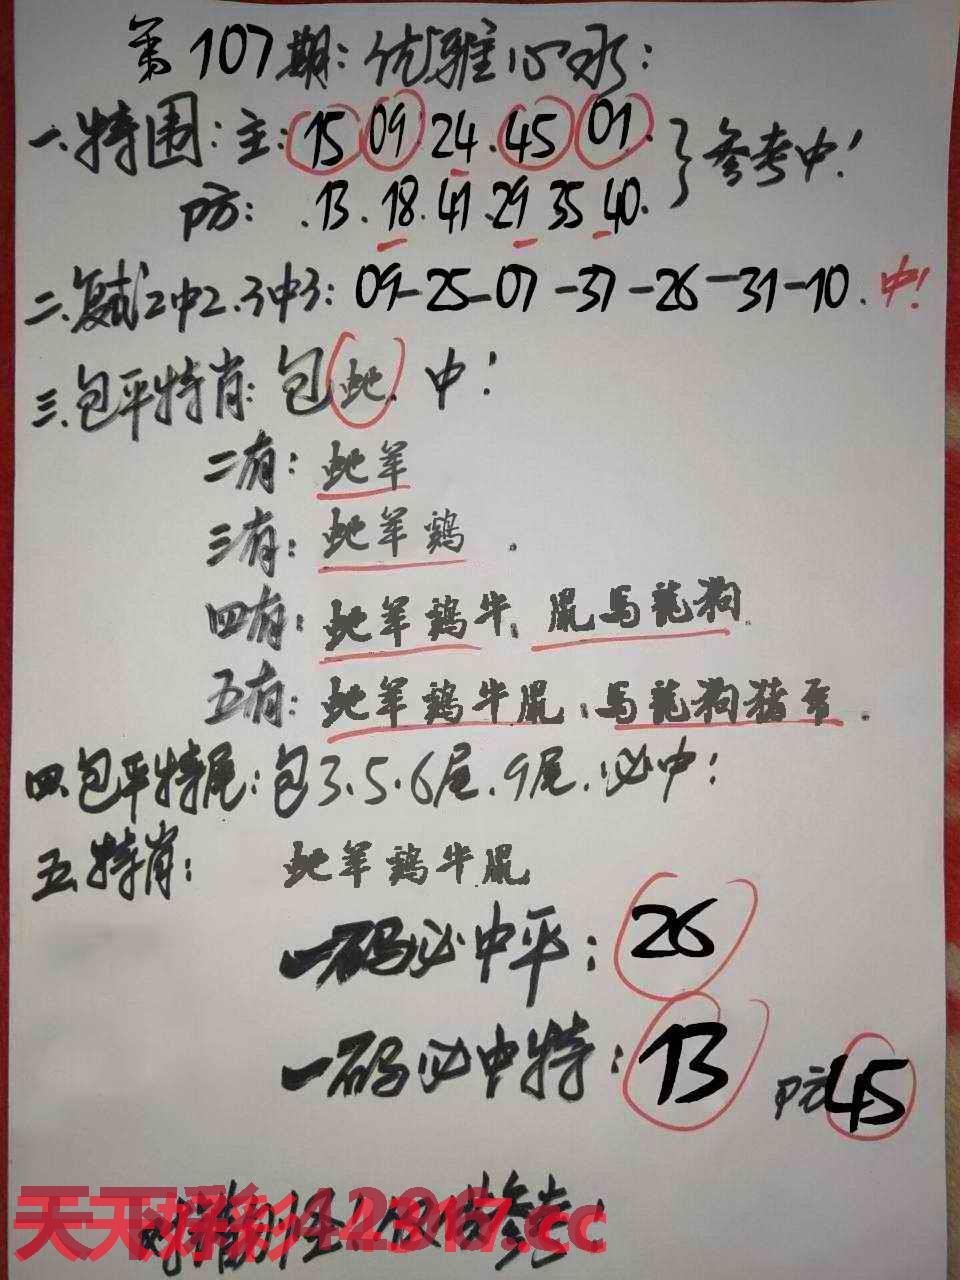 第107期:优雅心水:
一.特围:主:15 09 24.45 01.}参考中!
防:.13.18.41.29 35 40.
二.复式2中2.3中3:09-25-07-37-26-31-10.中!
三.包平特肖:包蛇.中!
二有:蛇羊
三有:蛇羊鸡.
四有:蛇羊鸡牛、鼠马龍狗.
五有:蛇羊鸡牛鼠;马龍狗猪.
四.包平特尾:包3.5.6尾.9尾.必中!
五.特肖:蛇羊鸡牛鼠
一码必中平:26
一码必中特:13 防45
天天好彩.cc